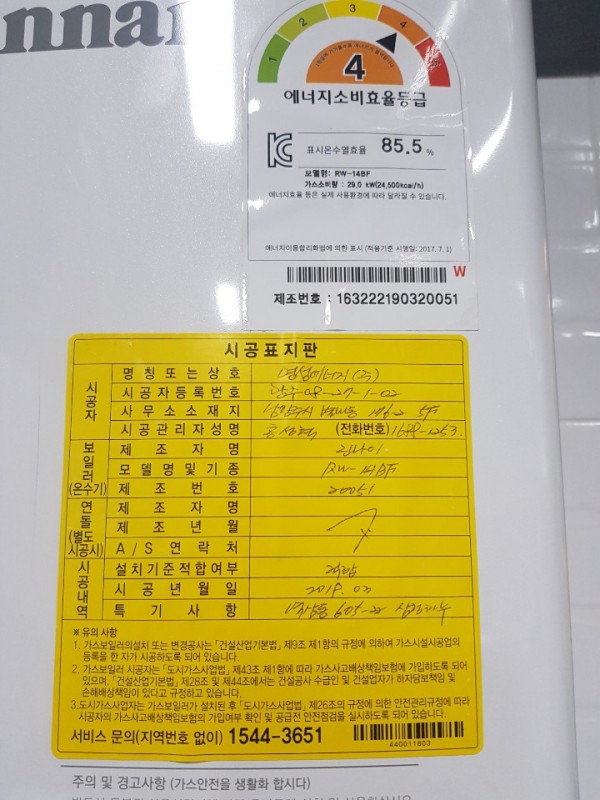 nnai
1
2
3
4
5
4
에너지소비효율등급
표시온수열효율 85.5 %
모델명: RW-14BF
가스소비량 : 29.0 kW(24,500kcal/h)
에너지효율 등은 실제 사용환경에 따라 달라질 수 있습니다.
에너지이용합리화법에 의한 표시 (적용기준 시행일: 2017. 7. 1)
W
제조번호 : 163222190320051
시공표지판
시공자
명칭 또는 상호
시공자등록번호
사무소소재지
시공관리자성명 (전화번호) 1688-1253
보일러(온수기)
제조자명 린나이
모델명및기종 RW-14BF
제조번호 20051
연돌(별도시공시)
제조자명
제조년월
A/S 연락처
시공내역
설치기준적합여부 적합
시공년월일 2019. 03
특기사항
※ 유의 사항
1. 가스보일러의설치 또는 변경공사는 「건설산업기본법」 제9조 제1항의 규정에 의하여 가스시설시공업의
등록을 한 자가 시공하도록 되어 있습니다.
2. 가스보일러 시공자는 「도시가스사업법」 제43조 제1항에 따라 가스사고배상책임보험에 가입하도록 되어
있으며, 「건설산업기본법」 제28조 및 제44조에서는 건설공사 수급인 및 건설업자가 하자담보책임 및
손해배상책임이 있다고 규정하고 있습니다.
3.도시가스사업자는 가스보일러가 설치된 후 「도시가스사업법」 제26조의 규정에 의한 안전관리규정에 따라
시공자의 가스사고배상책임보험의 가입여부 확인 및 공급전 안전점검을 실시하도록 되어 있습니다.
서비스 문의(지역번호 없이) 1544-3651
440011803
주의 및 경고사항 (가스안전을 생활화 합시다)